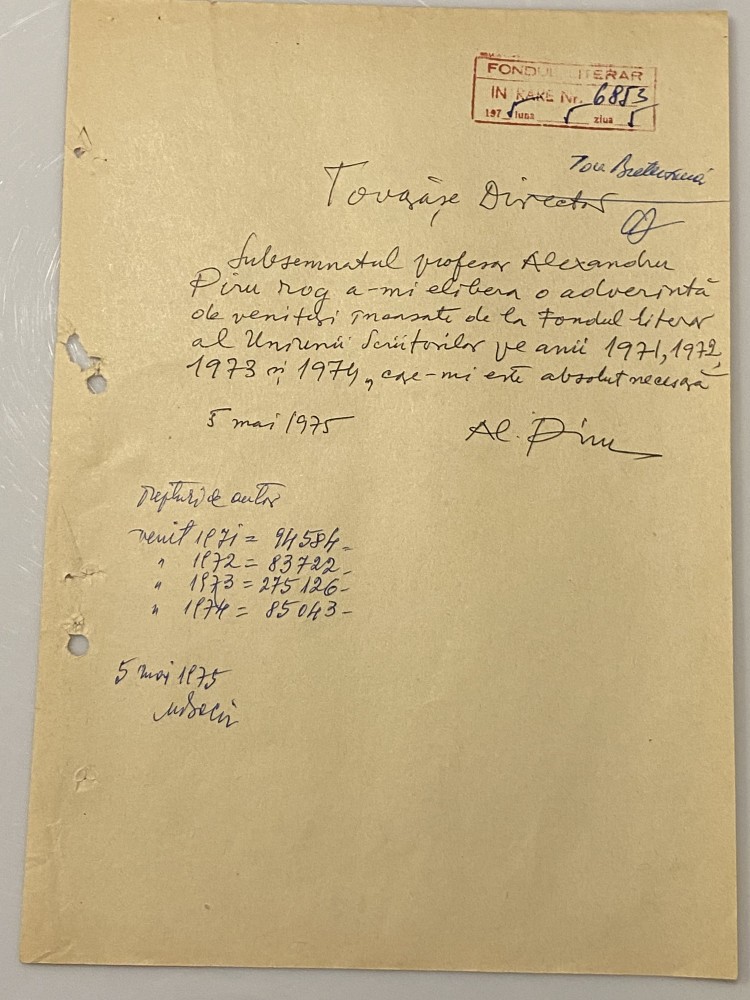 FONDUL LITERAR
INTRARE Nr. 6853
197 5 luna 5 ziua 5
Tovarășe Director
Subsemnatul profesor Alexandru
Piru rog a-mi elibera o adverință
de venituri încasate de la Fondul literar
al Uniunii Scriitorilor pe anii 1971, 1972,
1973 și 1974, care-mi este absolut necesară
5 mai 1975
Al. Piru
Drepturi de autor
venit 1971 = 94584 -
" 1972 = 83722 -
" 1973 = 275126 -
" 1974 = 85043 -
5 mai 1975